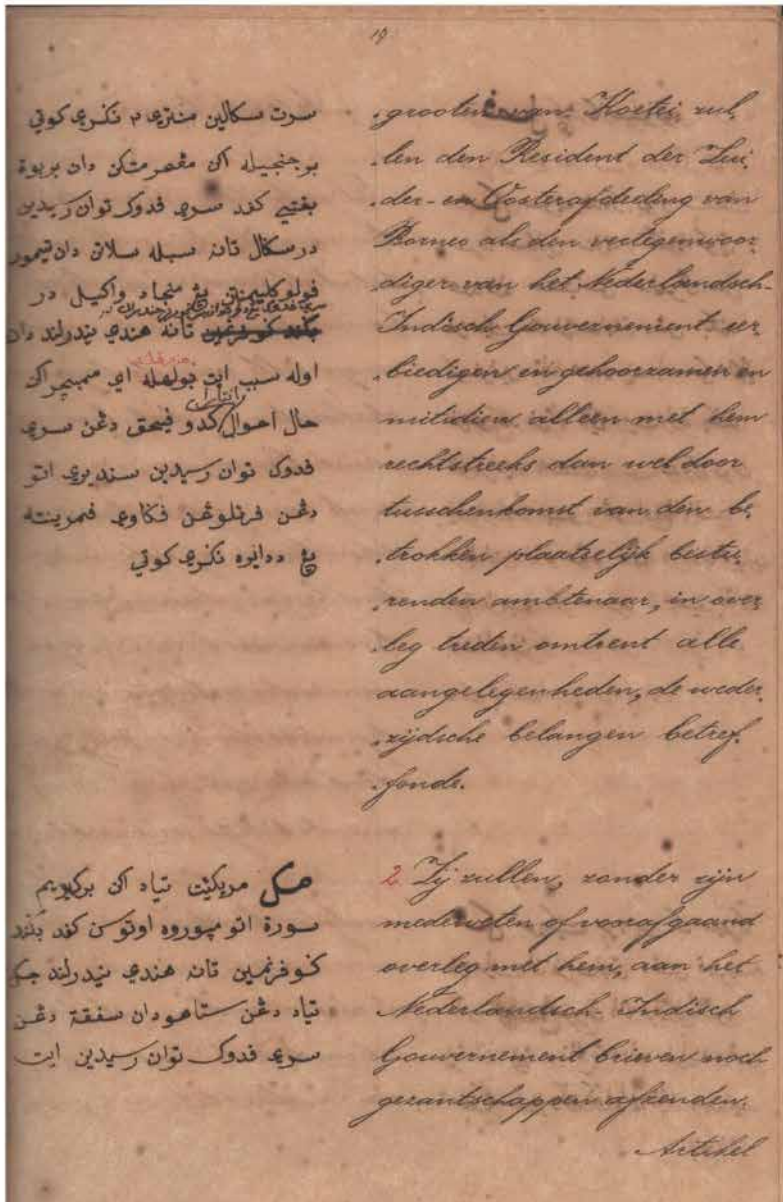 19
سرت سكالين منتري٢ نكري كوتي
برجنجيله اكن مڠحرمتكن دان بربوة
بقتي كفد سري فدوک توان رسيدين
درسكال تانه سبله سلاتن دان تيمور
فولو كليمنتن يڠ منجاد واكيل در
تانه هندي نيدرلند دان
اوله سبب ايت بولهله اي ممبچراكن
حال احوال كدو فيهق دڠن سري
فدوک توان رسيدين سنديري اتو
دڠن فرتلوڠن فكاوي فمرينته
يڠ ددايره نكري كوتي
مک مريكئت تياد اكن بركيريم
سورة اتو مپوروه اوتوسن كفد
كوفرنمين تانه هندي نيدرلند جک
تياد دڠن ستاهو دان سفقة دڠن
سري فدوک توان رسيدين ايت
grooten van Koetei zul,
len den Resident der Zui,
der- en Oosterafdeeling van
Borneo als den vertegenwoor
diger van het Nederlandsch-
Indisch Gouvernement eer
biedigen en gehoorzamen en
mitsdien alleen met hem
rechtstreeks dan wel door
tusschenkomst van den be,
trokken plaatselijk bestu,
renden ambtenaar, in over
leg treden omtrent alle
aangelegenheden, de weder,
zijdsche belangen betref,
fende.
2 Zij zullen, zonder zijn
medeweten of voorafgaand
overleg met hem, aan het
Nederlandsch-Indisch
Gouvernement brieven noch
gezantschappen afzenden.
Artikel